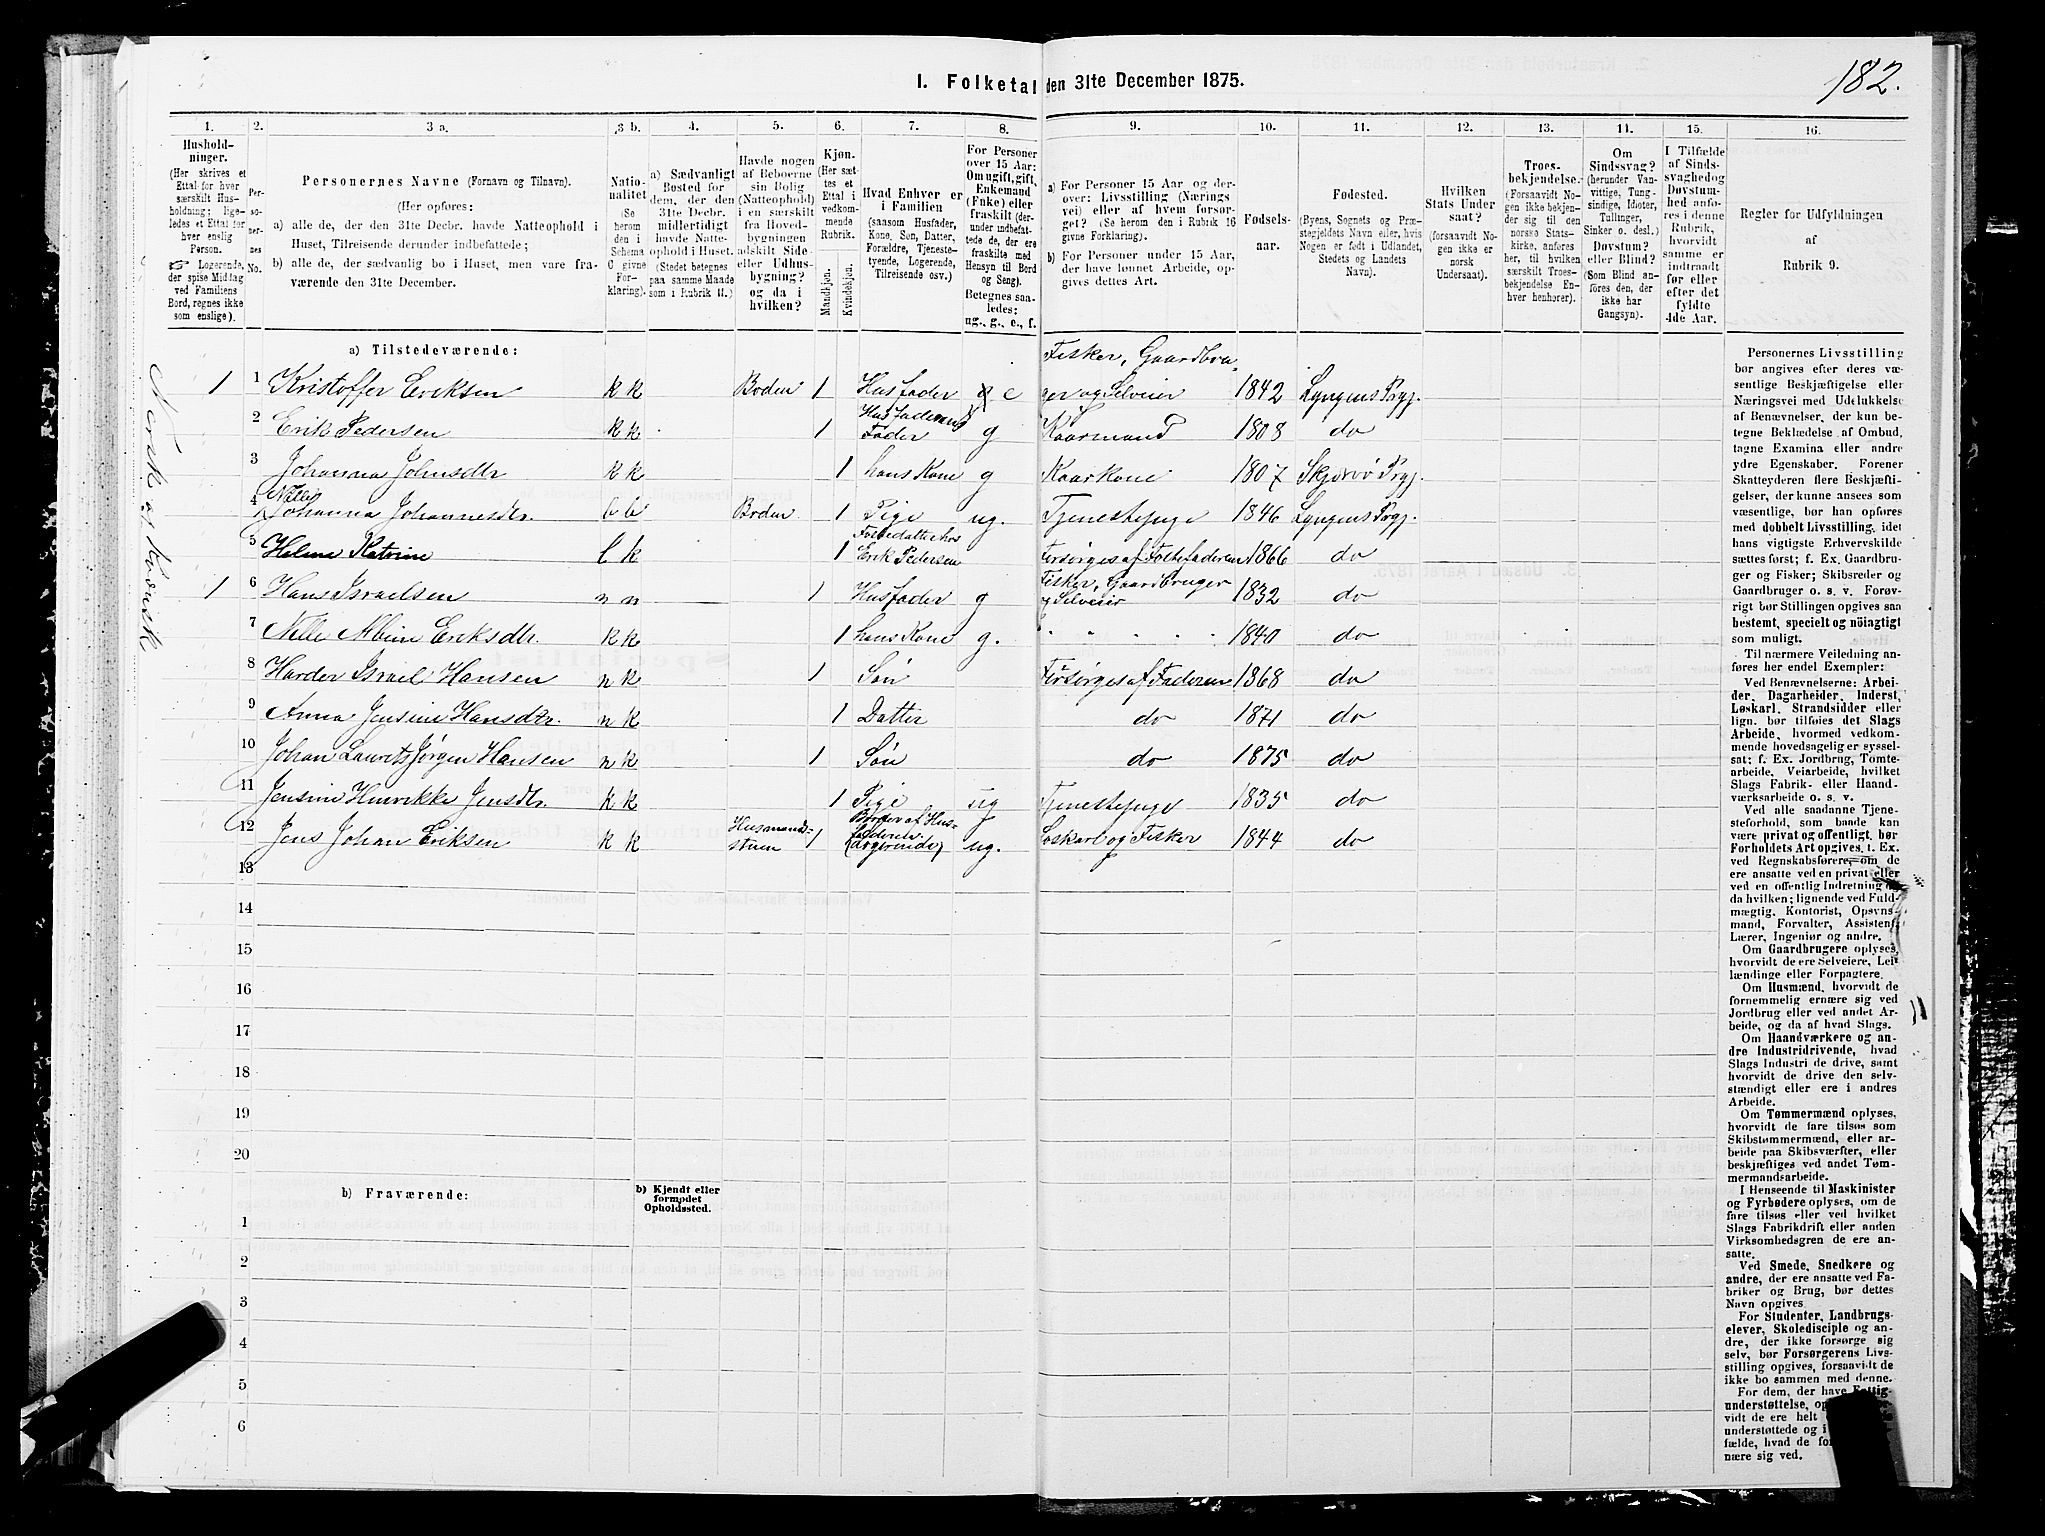 182.
I. Folketal den 31te December 1875.
1. 2. 3 a. 3 b. 4. 5. 6. 7. 8. 9. 10. 11. 12. 13. 14. 15. 16.
Husholdninger.
(Her skrives et Ettal for hver særskilt Husholdning; ligeledes et Ettal for hver enslig Person.
Logerende, der spise Middag ved Familiens Bord, regnes ikke som enslige).
Personernes No.
Personernes Navne (Fornavn og Tilnavn).
(Her opføres:
a) alle de, der den 31te Decbr. havde Natteophold i Huset, Tilreisende derunder indbefattede;
b) alle de, der sædvanlig bo i Huset, men vare fraværende den 31te December.
Nationalitet (Se herom den i Schema C givne Forklaring).
a) Sædvanligt Bosted for dem, der den 31te Decbr. midlertidigt havde Natteophold i Huset.
(Stedet betegnes paa samme Maade som i Rubrik 11.)
Havde nogen af Beboerne sin Bolig (Natteophold) i en særskilt fra Hovedbygningen adskilt Side- eller Udhusbygning? og da i hvilken?
Kjøn. (Her sættes et Ettal i vedkommende Rubrik.
Mandkjøn. Kvindekjøn.
Hvad Enhver er i Familien
(saasom Husfader, Kone, Søn, Datter, Forældre, Tjenestetyende, Logerende, Tilreisende osv.)
For Personer over 15 Aar: Om ugift, gift, Enkemand (Enke) eller fraskilt (derunder indbefattede de, der ere fraskilte med Hensyn til Bord og Seng).
Betegnes saaledes: ug., g., e., f.
a) For Personer 15 Aar og derover: Livsstilling (Næringsvei) eller af hvem forsørget? (Se herom den i Rubrik 16 givne Forklaring).
b) For Personer under 15 Aar, der have lønnet Arbeide, opgives dettes Art.
Fødselsaar.
Fødested.
(Byens, Sognets og Præstegjeldets Navn eller, hvis Nogen er født i Udlandet, Stedets og Landets Navn).
Hvilken Stats Undersaat?
(forsaavidt Nogen ikke er norsk Undersaat).
Troesbekjendelse.
(Forsaavidt Nogen ikke bekjender sig til den norske Statskirke, anføres her, til hvilken særskilt Troesbekjendelse Enhver henhører).
Om Sindssvag? (herunder Vanvittige, Tungsindige, Idioter, Tullinger, Sinker o. desl.)
Døvstum? eller Blind?
(Som Blind anføres den, der ikke har Gangsyn).
I Tilfælde af Sindssvaghed og Døvstumhed anføres i denne Rubrik, hvorvidt samme er indtraadt før eller efter det fyldte 4de Aar.
Regler for Udfyldningen af Rubrik 9.
Norsk at Kvænsk
a) Tilstedeværende:
1 1 Kristoffer Eriksen k k Boden 1 Husfader e Fisker, Gaardbruger og Selveier 1842 Lyngens Prgj.
2 Erik Pedersen k k 1 Husfaderens Fader g Kaarmand 1808 do
3 Johanna Johnsdtr k k 1 hans Kone g Kaarkone 1807 Skjervø Prgj.
4 Johanna Johannesdtr. b b Boden 1 Pige ug. Tjenestepige 1846 Lyngens Prgj.
5 Helene Katrine b k 1 Fosterdatter hos Erik Pedersen Forsørges af Fosterfaderen 1866 do
1 6 Hans Israelsen n n 1 Husfader g Fisker, Gaardbruger og Selveier 1832 do
7 Nelle Albine Eriksdtr. k k 1 hans Kone g. " " " " " 1840 do
8 Harder Israel Hansen n k 1 Søn Forsørges af Faderen 1868 do
9 Anna Jensine Hansdtr. n k 1 Datter do 1871 do
10 Johan Laurets Jørgen Hansen n k 1 Søn do 1875 do
11 Jensine Henrikke Jensdtr. k k 1 Pige ug Tjenestepige 1835 do
12 Jens Johan Eriksen k k Husmandsstuen 1 Broder af Husfaderen (logerende) ug. Løskarl og Fisker 1844 do
13
14
15
16
17
18
19
20
b) Fraværende: b) Kjendt eller formodet Opholdssted.
1
2
3
4
5
6
Personernes Livsstilling
bør angives efter deres væ-
sentlige Beskjæftigelse eller
Næringsvei med Udelukkelse
af Benævnelser, der kun be-
tegne Beklædelse af Ombud,
tagne Examina eller andre
ydre Egenskaber. Forener
Skatteyderen flere Beskjæfti-
gelser, der kunne ansees som
væsentlige, bør han opføres
med dobbelt Livsstilling, idet
hans vigtigste Erhvervskilde
sættes først; f. Ex. Gaardbru-
ger og Fisker; Skibsreder og
Gaardbruger o. s. v. Forøv-
rigt bør Stillingen opgives saa
bestemt, specielt og nöiagtigt
som muligt.
Til nærmere Veiledning an-
føres her endel Exempler:
Ved Benævnelserne: Arbei-
der, Dagarbeider, Inderst,
Løskarl, Strandsidder eller
lign. bør tilføies det Slags
Arbeide, hvormed vedkom-
mende hovedsagelig er syssel-
sat; f. Ex. Jordbrug, Tomte-
arbeide, Veiarbeide, hvilket
Slags Fabrik- eller Haand-
værksarbeide o. s. v.
Ved alle saadanne Tjene-
steforhold, som baade kan
være privat og offentligt, bør
Forholdets Art opgives, t. Ex.
ved Regnskabsførere, om de
ere ansatte ved en privat eller
ved en offentlig Indretning og
da hvilken; lignende ved Fuld-
mægtig, Kontorist, Opsyns-
mand, Forvalter, Assistent,
Lærer, Ingeniør og andre.
Om Gaardbrugere oplyses,
hvorvidt de ere Selveiere, Lei-
lændinge eller Forpagtere.
Om Husmænd, hvorvidt de
fornemmelig ernære sig ved
Jordbrug eller ved andet Ar-
beide, og da af hvad Slags.
Om Haandværkere og an-
dre Industridrivende, hvad
Slags Industri de drive, samt
hvorvidt de drive den selv-
stændigt eller ere i andres
Arbeide.
Om Tømmermænd oplyses,
hvorvidt de fare tilsøs som
Skibstømmermænd, eller ar-
beide paa Skibsværfter, eller
beskjæftiges ved andet Tøm-
mermandsarbeide.
I Henseende til Maskinister
og Fyrbødere oplyses, om de
fare tilsøs eller ved hvilket
Slags Fabrikdrift eller anden
Virksomhedsgren de ere an-
satte.
Ved Smede, Snedkere og
andre, der ere ansatte ved Fa-
briker og Brug, bør dettes
Navn opgives
For Studenter, Landbrugs-
elever, Skoledisciple og an-
dre, der ikke forsørge sig
selv, bør Forsørgerens Livs-
stilling opgives, forsaavidt de
ikke bo sammen med denne.
For dem, der have Fattig-
understøttelse,
vidt de ere helt
understøttede og i
fælde, hvad de
nære sig ved.